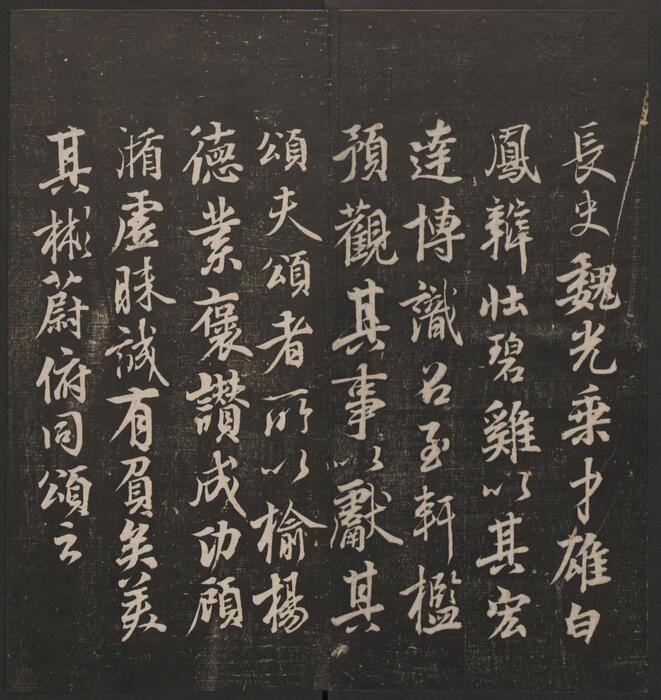 長史魏光乘才雄白
鳳辯壯碧雞以其宏
達博識召至軒檻
預觀其事以獻其
頌夫頌者所以榆楊
德業褒讚成功顧
循虛昧誠有負矣美
其彬蔚俯同頌云